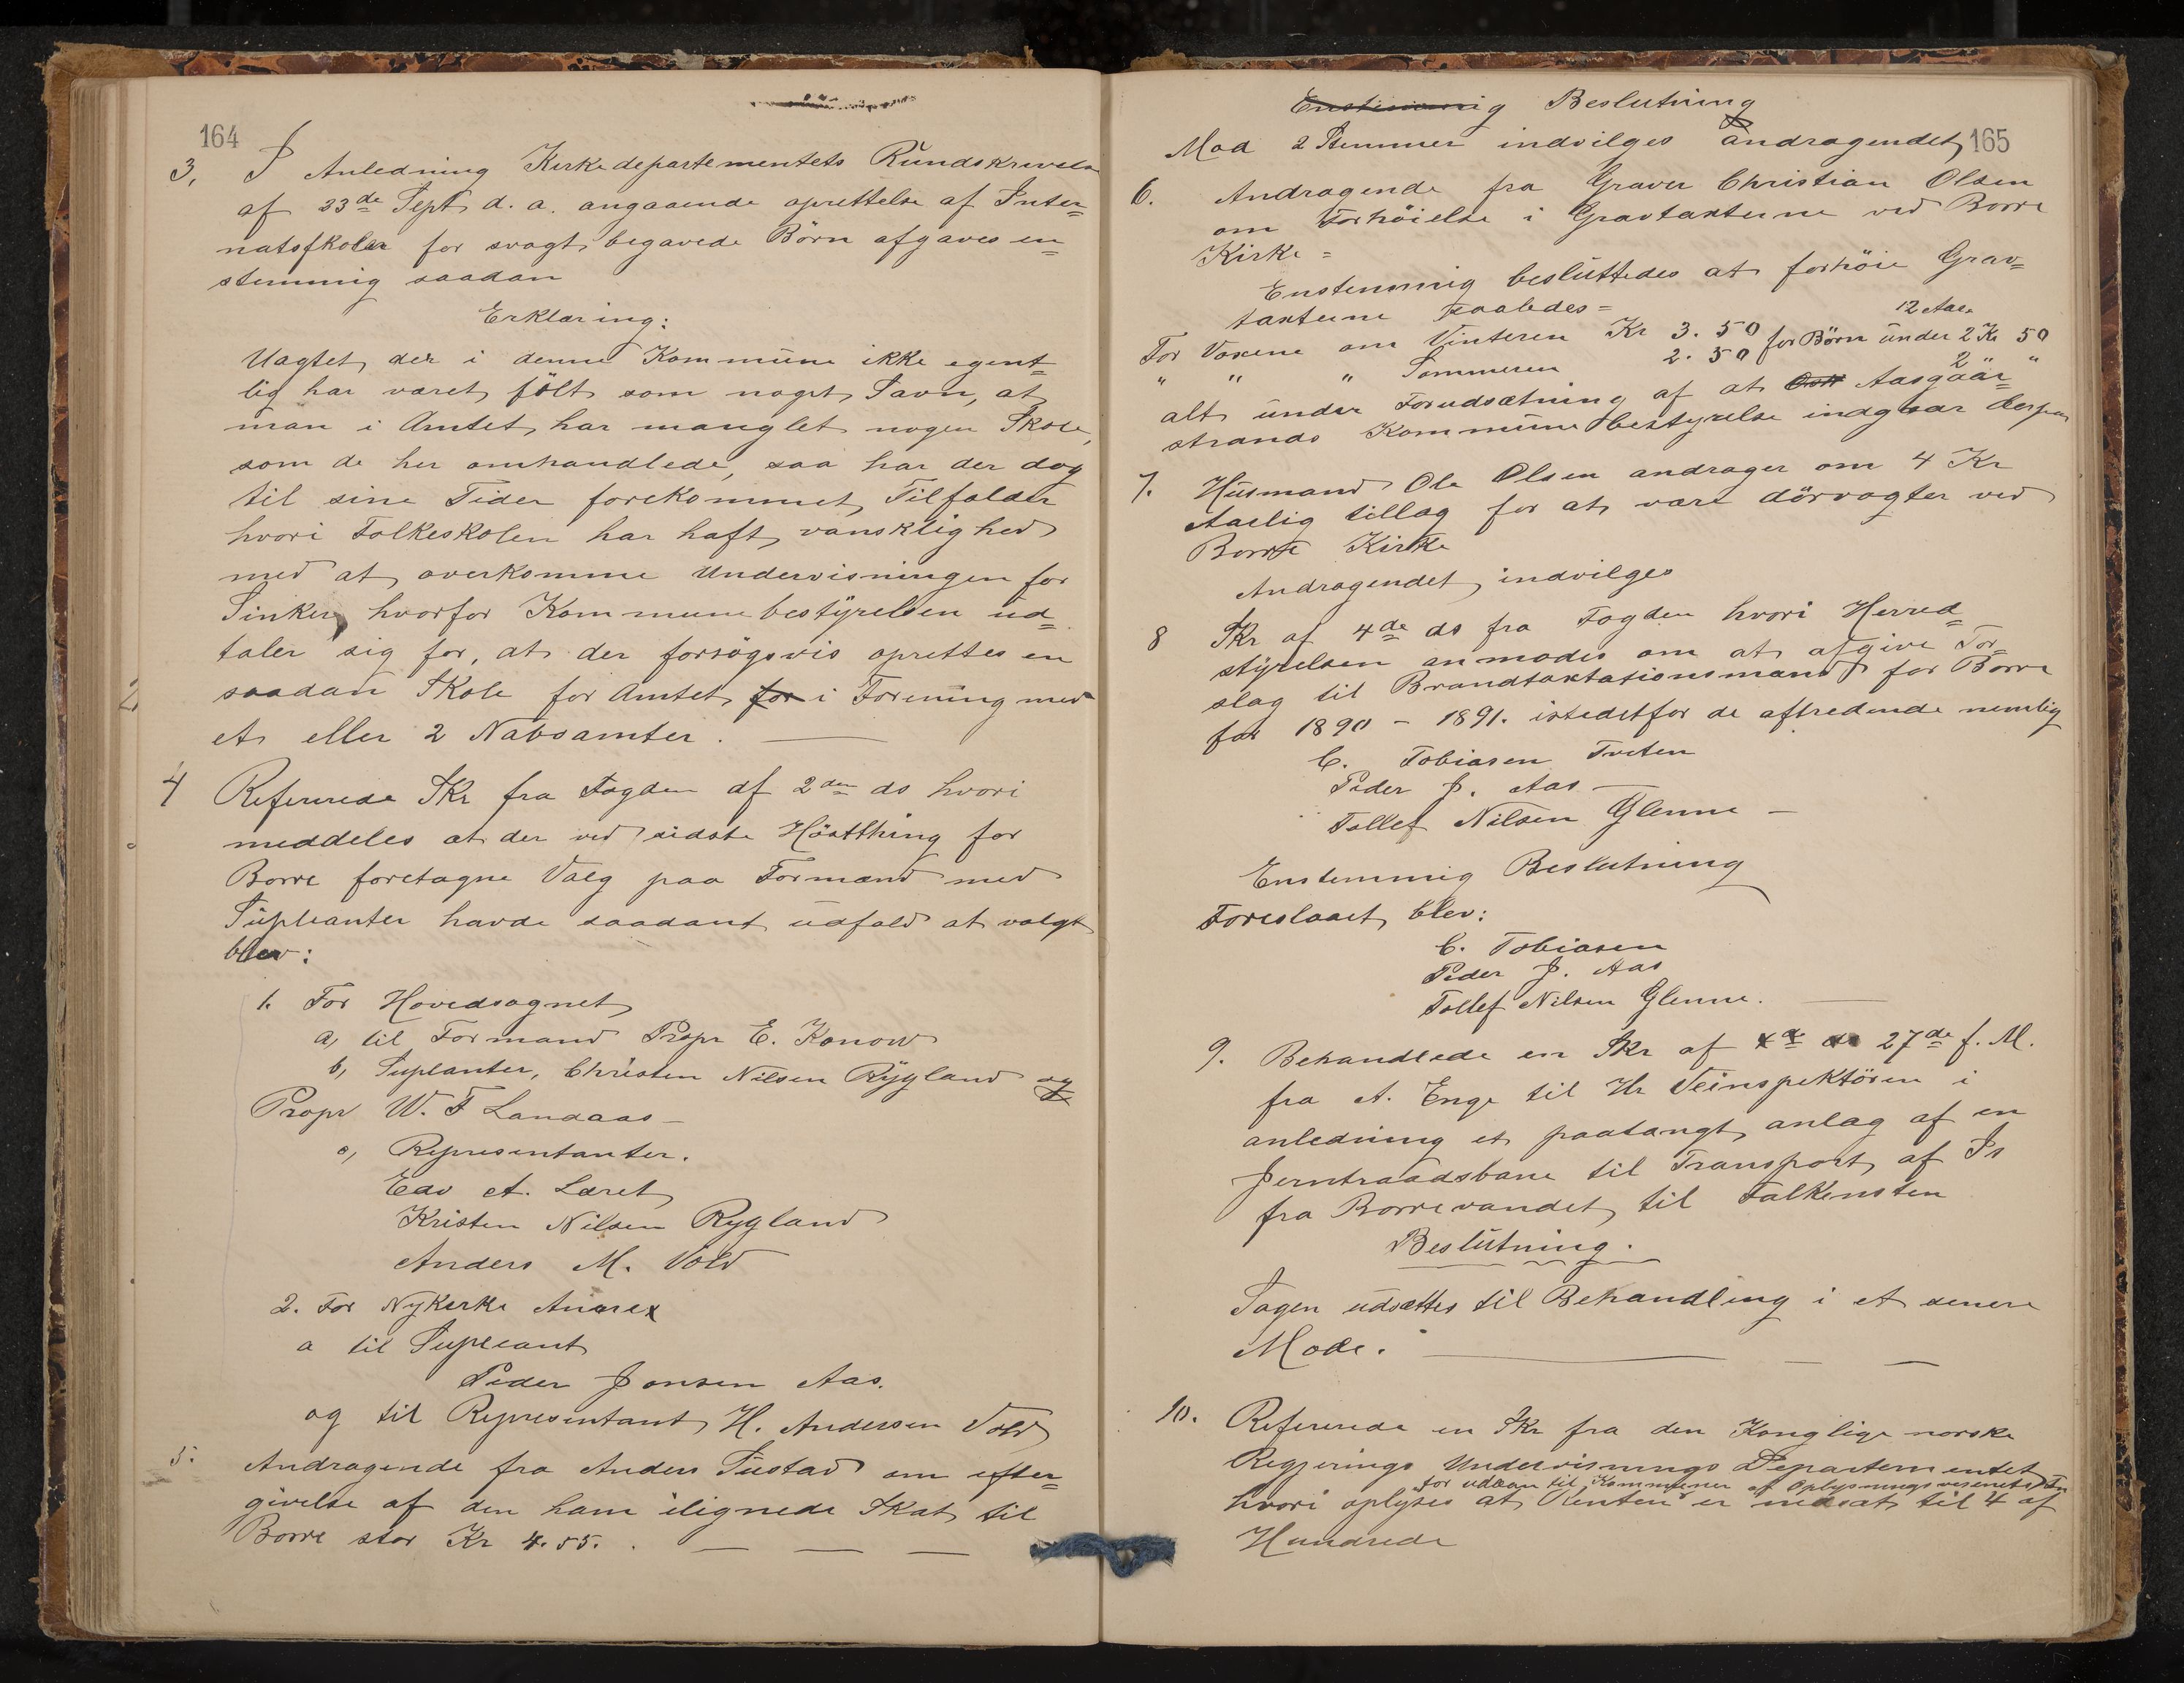 164
3, I Anledning Kirkedepartementets Rundskrivelse
af 23de Sept d. a. angaaende oprettelse af Inter=
natsskoler for svagt begavede Börn afgaves en=
stemmig saadan
Erklæring:
Uagtet der i denne Kommune ikke egent=
lig har været fölt som noget Savn, at
man i Amtet har manglet nogen Skole,
som de her omhandlede, saa har der dog
til sine Tider forekommet Tilfælder
hvori Folkeskolen har haft vansklighed
med at overkomme Undervisningen for
Sinker, hvorfor Kommunebestyrelsen ud=
taler sig for, at der forsögsvis oprettes en
saadan Skole for Amtet for i Forening med
et eller 2 Naboamter. —
4 Refererede Skr fra Fogden af 2den ds hvori
meddeles at der ved sidste Höstthing for
Borre foretagne Valg paa Formænd med
Supleanter havde saadant udfald at valgt
blev:
1. For Hovedsognet
a, til Formand Propr E. Konow
b, Suplanter, Christen Nilsen Rygland og
Propr W. F Landaas –
c, Representanter.
Edv A. Læret
Kristen Nilsen Rygland
Anders M. Vold
2. For Nykirke Annex
a til Supleant
Peder Jonsen Aas.
og til Representant H. Andersen Vold
5. Andragende fra Anders Sustad om efter=
givelse af den ham ilignede Skat til
Borre stor Kr 4.55. — — —
Enstemmig Beslutning
Mod 2 Stemmer indvilges andragendet
165
6. Andragende fra Graver Christian Olsen
om Forhöielse i Gravtaxterne ved Borre
Kirke =
Enstemmig besluttedes at forhöie Grav=
taxterne saaledes =
12 Aar
For Voxne om Vinteren Kr 3.50 for Börn under 2 Kr 50
" " " Sommeren 2.50 " 2 " "
alt under Forudsætning af at Aasgaar=
strands Kommunebestyrelse indgaar derpaa
7. Husmand Ole Olsen andrager om 4 Kr
Aarlig tillæg for at være dörvogter ved
Borre Kirke
Andragendet indvilges
8 Skr af 4de ds fra Fogden hvori Herred=
styrelsen anmodes om at afgive For=
slag til Brandtaxtationsmænd for Borre
for 1890 – 1891. istedetfor de aftredende nemlig
C. Tobiasen Tveten
Peder J. Aas —
Tollef Nilsen Glenne –
Enstemmig Beslutning
Foreslaaet blev:
C. Tobiasen
Peder J. Aas
Tollef Nilsen Glenne. —
9. Behandlede en Skr af 27de f. M.
fra A. Enge til Hr Veinspektören i
anledning et paatængt anlæg af en
Jerntraadsbane til Transport af Is
fra Borrevandet til Falkensten
Beslutning.
Sagen udsættes til Behandling i et senere
Mode. — — —
10. Refererede en Skr fra den Konglige norske
Regjerings Undervisnings Departementet
for udlaan til Kommuner af Oplysningsvæsenets
hvori oplyses at Renten er nedsat til 4 af
Hundrede